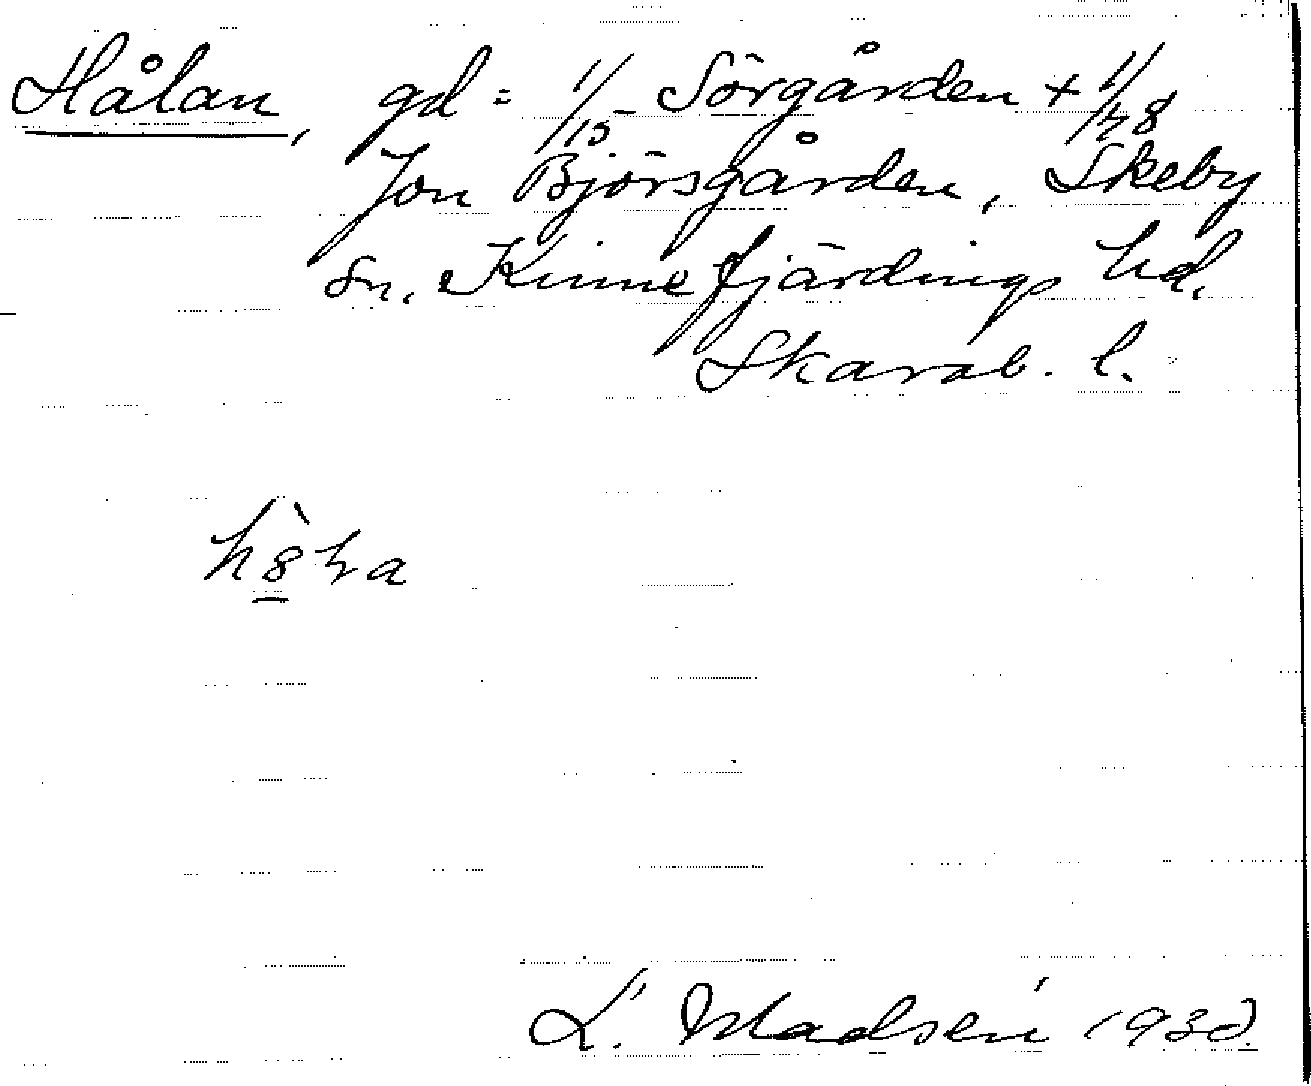 Hålan, gd = 1/15 Sörgården + 1/48
Jon Björsgården, Skeby
sn. Kinnefjärdings hd.
Skarab. l.
L. Madsén 193